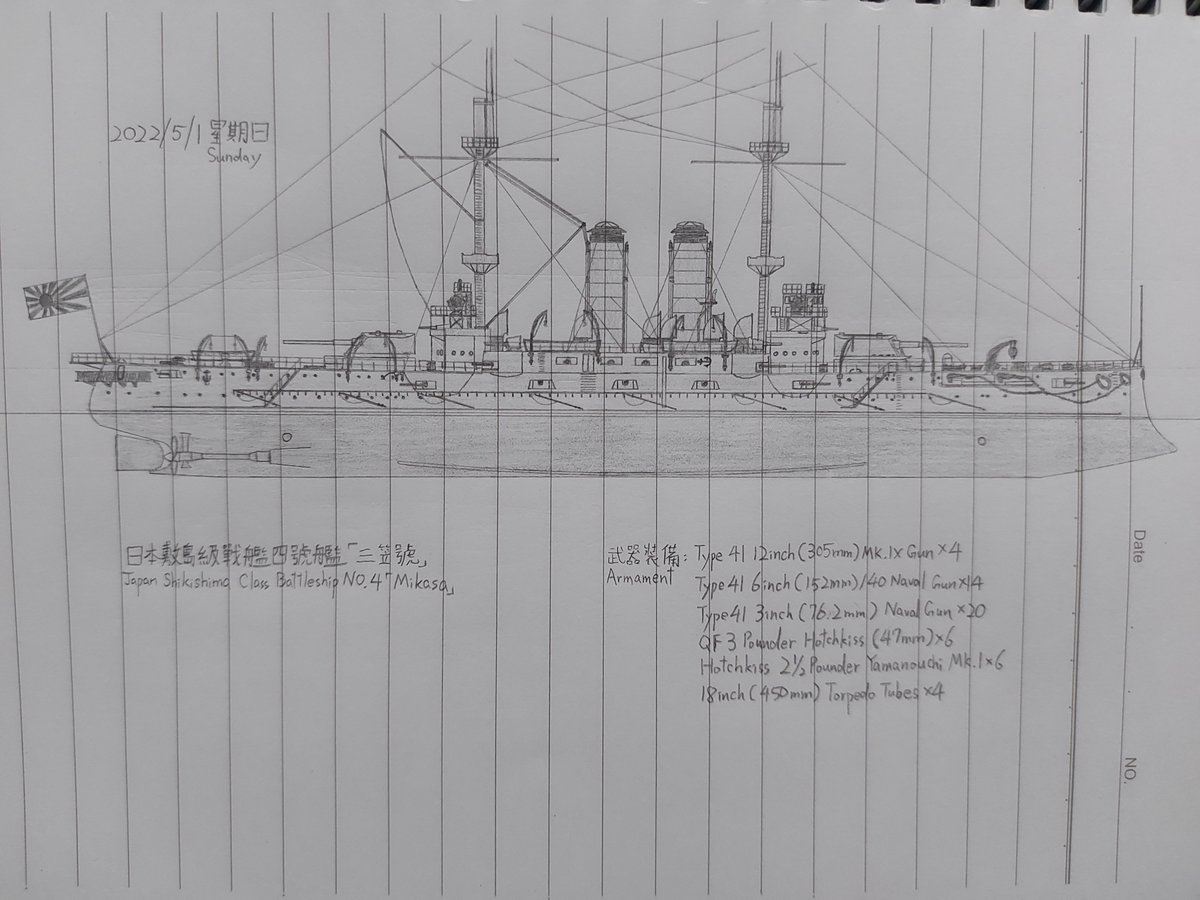 2022/5/1 星期日
Sunday
日本敷島級戰艦四號艦「三笠號」
Japan Shikishima Class Battleship NO.4「Mikasa」
武器裝備: Type 41 12inch (305mm) MK.IX Gun ×4
Armament Type 41 6inch (152mm)/40 Naval Gun ×14
Type 41 3inch (76.2mm) Naval Gun ×20
QF 3 Pounder Hotchkiss (47mm) ×6
Hotchkiss 2½ Pounder Yamanouchi Mk.1 ×6
18inch (450mm) Torpedo Tubes ×4
Date
NO.